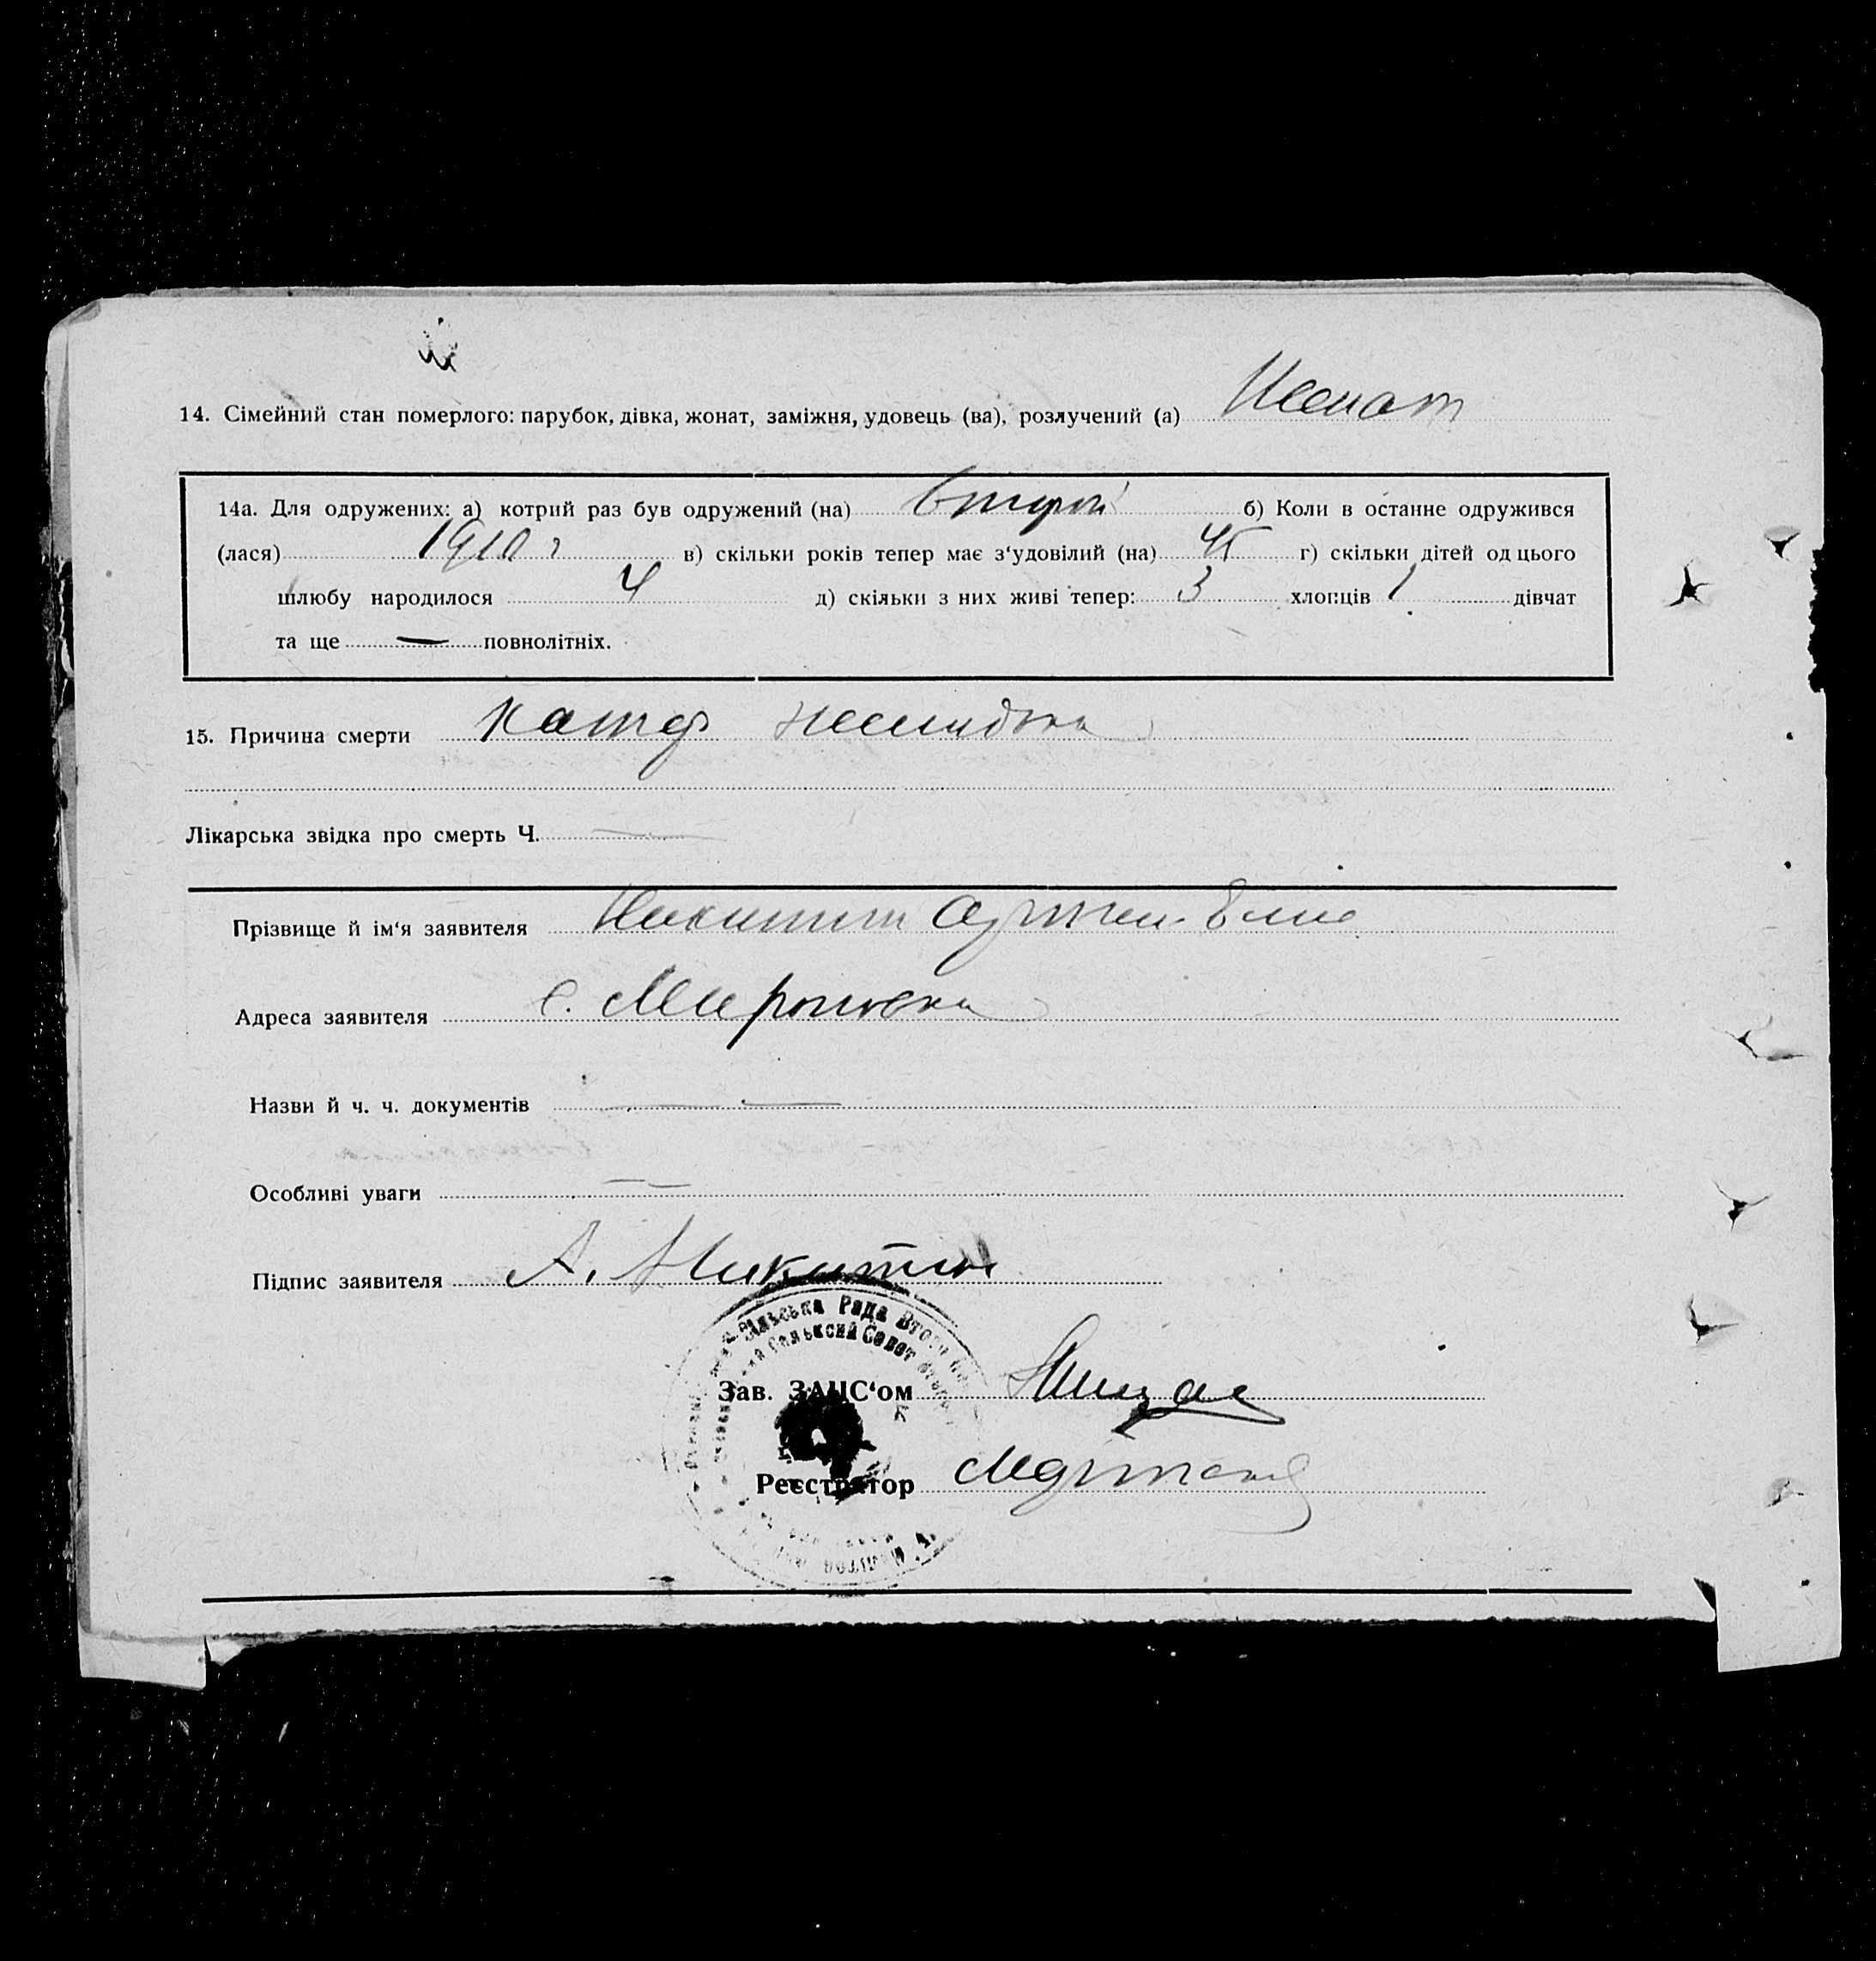 14. Сімейний стан померлого: парубок, дівка, жонат, заміжня, удовець (ва), розлучений (а) Женат
14а. Для одружених: а) котрий раз був одружений (на) второй б) Коли в останнє одружився
(лася) 1910 г в) скільки років тепер має з'удовілий (на) 45 г) скільки дітей од цього
шлюбу народилося 4 д) скільки з них живі тепер: 3 хлопців 1 дівчат
та ще — повнолітніх.
15. Причина смерти Катар желудка
Лікарська звідка про смерть Ч. —
Прізвище й ім'я заявителя Никитин
Адреса заявителя с. Мироновка
Назви й ч. ч. документів —
Особливі уваги —
Підпис заявителя А. Никитин
Сільська Рада
Сельский Совет
Зав. ЗАПС'ом
Реєстратор